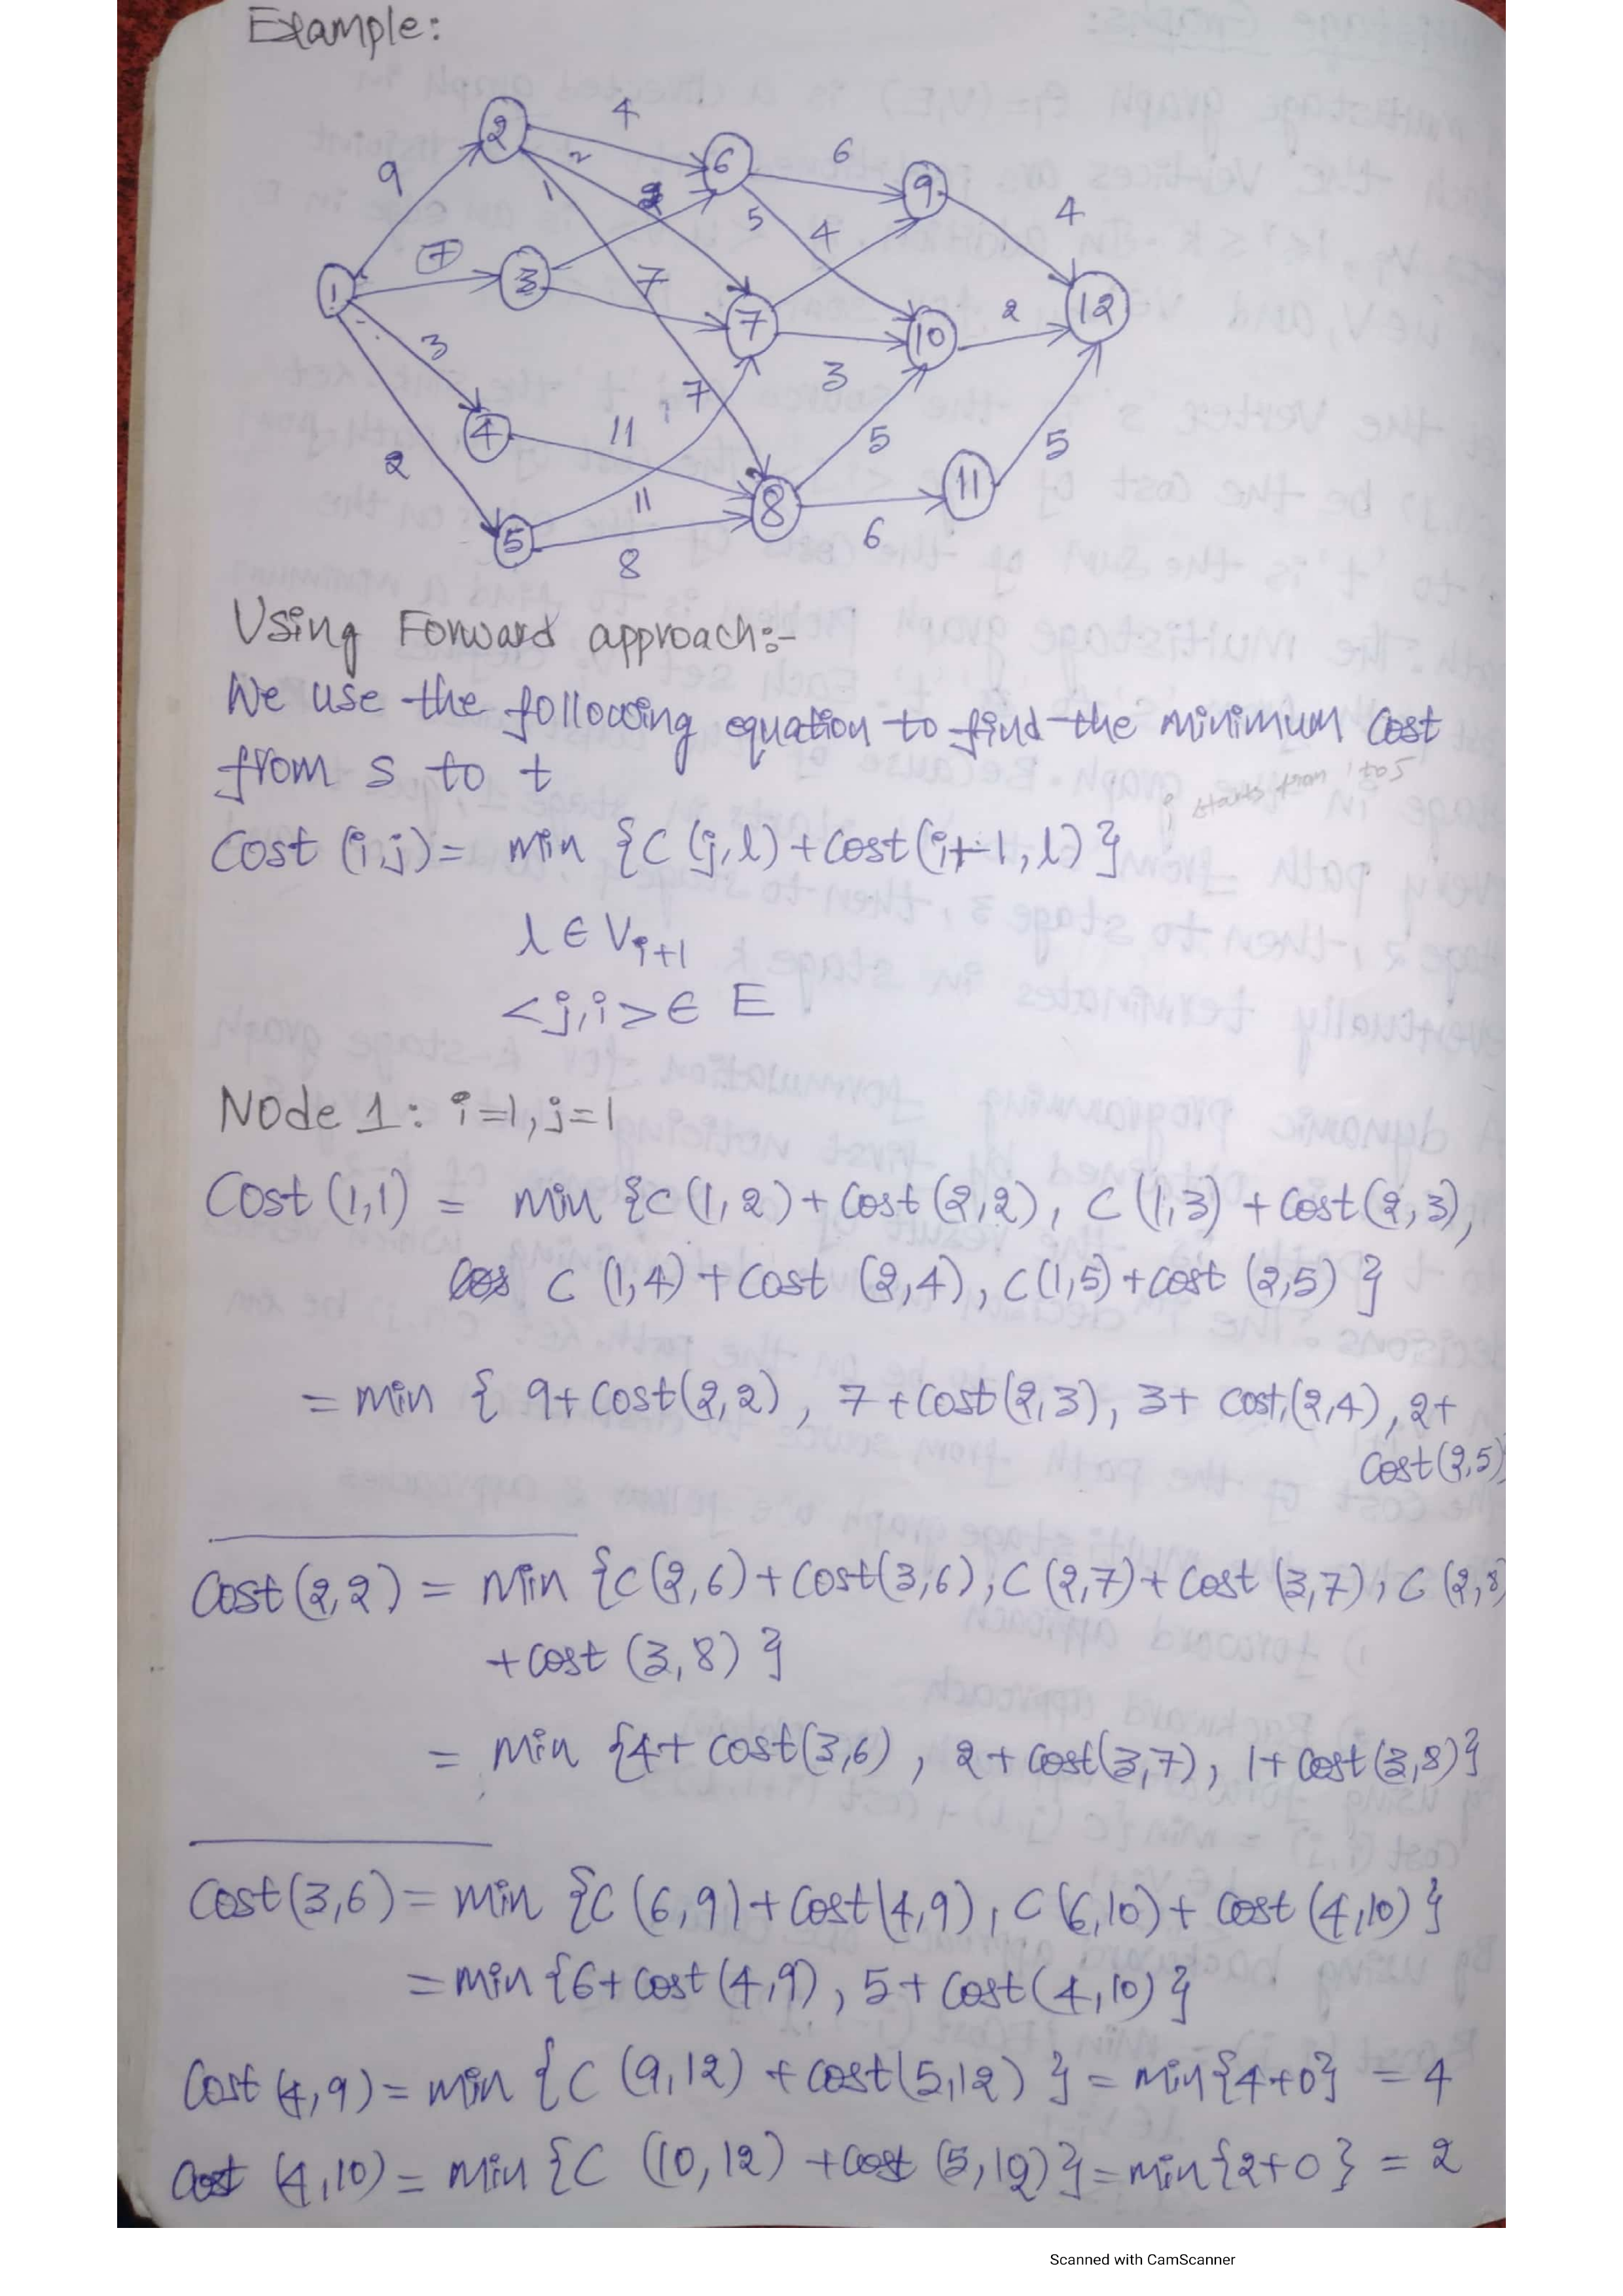 Example:
9
4
2
1
6
5
4
4
7
7
3
3
2
7
11
11
2
8
5
6
5
1
2
3
4
5
6
7
8
9
10
11
12
Using Forward approach:-
We use the following equation to find the minimum cost
from s to t
i starts from 1 to 5
Cost (i,j) = min {C (j,l) + cost (i+1, l) }
l ∈ Vi+1
<j,i> ∈ E
Node 1: i=1, j=1
Cost (1,1) = min {C (1,2) + cost (2,2), C (1,3) + cost (2,3),
C (1,4) + cost (2,4), C(1,5) + cost (2,5) }
= min { 9+ cost(2,2), 7 + cost (2,3), 3+ cost (2,4), 2+
cost (2,5)
Cost (2,2) = min {C (2,6) + cost(3,6), C (2,7) + cost (3,7), C (2,8)
+ cost (3,8) }
= min {4+ cost(3,6), 2+ cost(3,7), 1+ cost (3,8)}
Cost (3,6) = min {C (6,9) + cost (4,9), C (6,10) + cost (4,10) }
= min {6+ cost (4,9), 5 + cost (4,10) }
Cost (4,9) = min {C (9,12) + cost(5,12) } = min{4+0} = 4
Cost (4,10) = min {C (10,12) + cost (5,12)} = min{2+0} = 2
Scanned with CamScanner